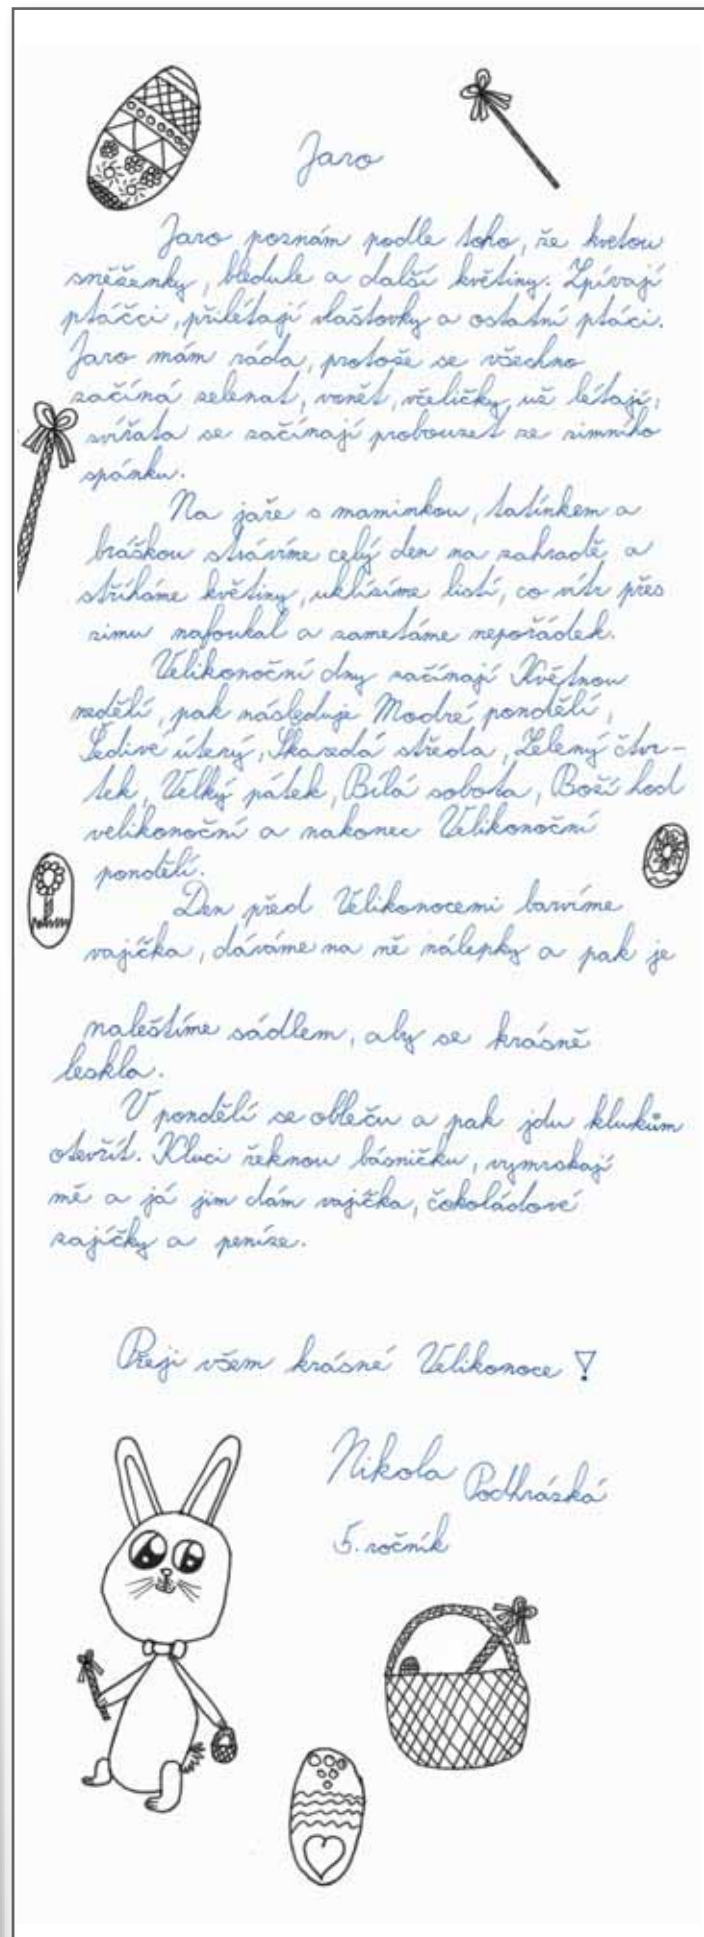 Jaro
Jaro poznám podle toho, že kvetou
sněženky, bledule a další květiny. Zpívají
ptáčci, přilétají vlaštovky a ostatní ptáci.
Jaro mám ráda, protože se všechno
začíná zelenat, vonět, včeličky už létají,
zvířata se začínají probouzet ze zimního
spánku.
Na jaře s maminkou, tatínkem a
bráškou strávíme celý den na zahradě a
stříháme květiny, uklízíme listí, co vítr přes
zimu nafoukal a zametáme nepořádek.
Velikonoční dny začínají Květnou
nedělí, pak následuje Modré pondělí,
Šedivé úterý, Škaredá středa, Zelený čtvr-
tek, Velký pátek, Bílá sobota, Boží hod
velikonoční a nakonec Velikonoční
pondělí.
Den před Velikonocemi barvíme
vajíčka, dáváme na ně nálepky a pak je
naleštíme sádlem, aby se krásně
leskla.
V pondělí se obleču a pak jdu klukům
otevřít. Kluci řeknou básničku, vymrskají
mě a já jim dám vajíčka, čokoládové
zajíčky a peníze.
Přeji všem krásné Velikonoce!
Nikola Podhrázká
5. ročník